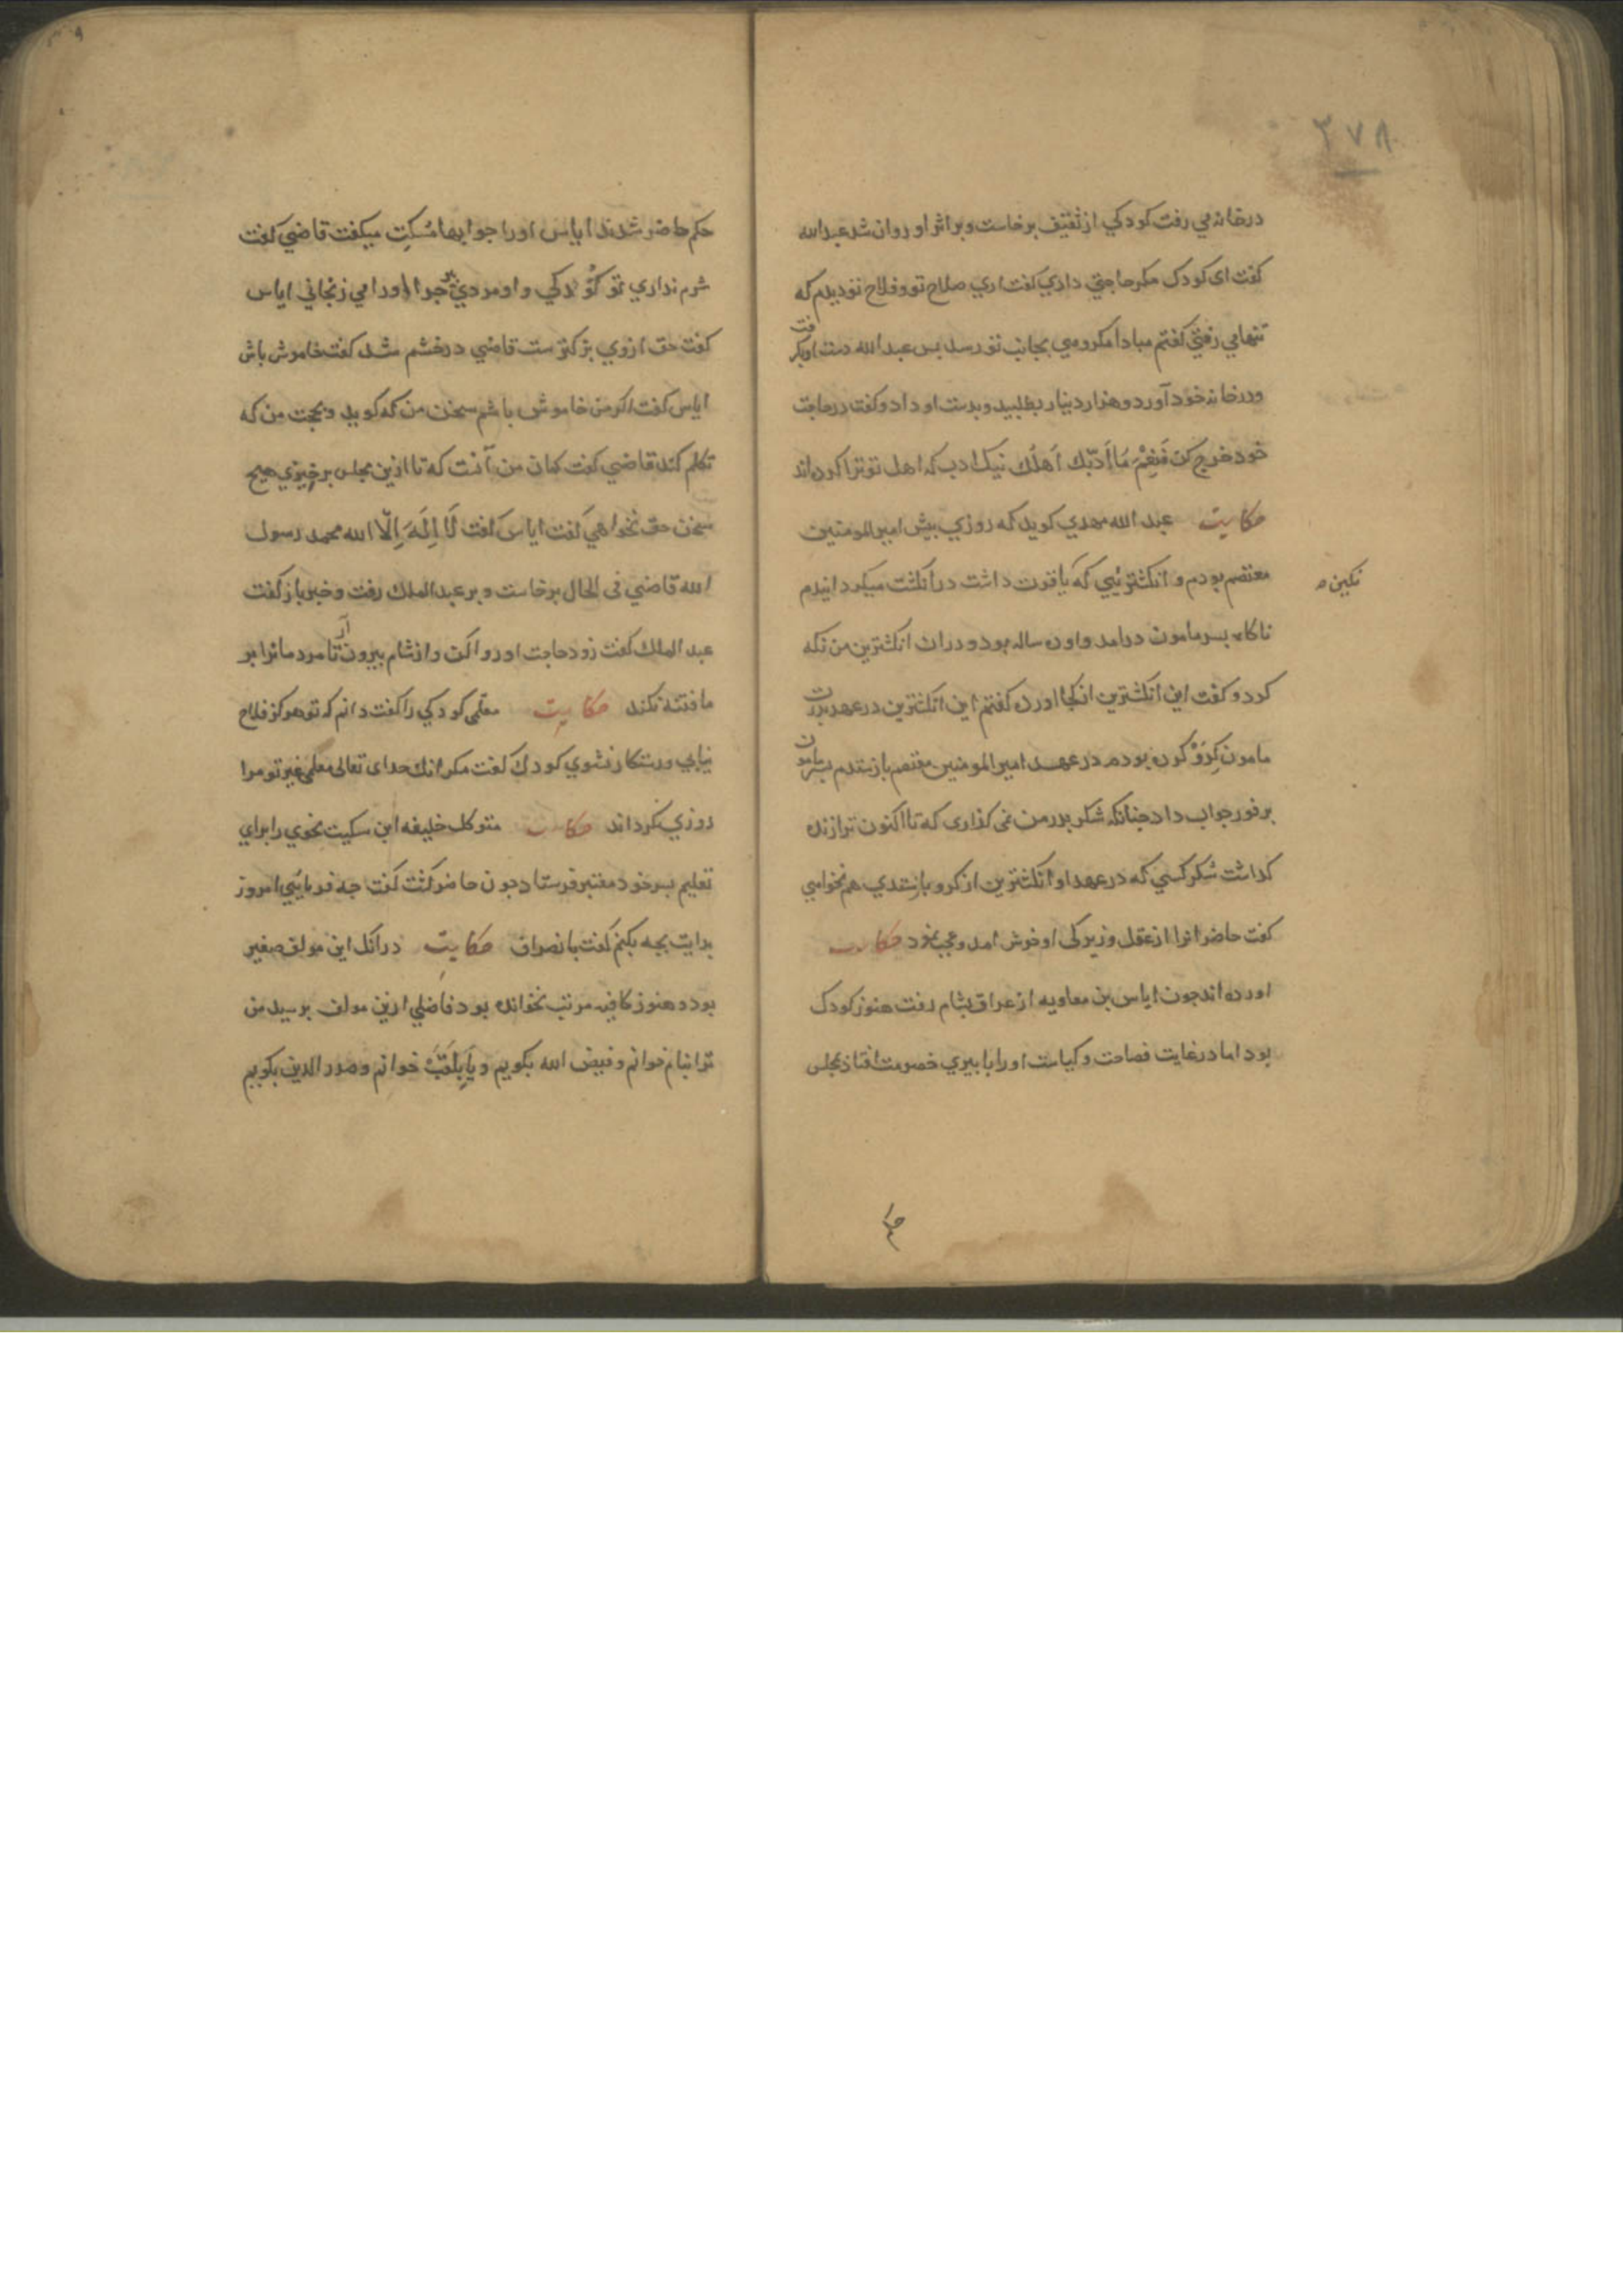 ۳۷۸
در خانه می رفت کودکی از ثقیف برخاست و بر اثر او روان شد عبدالله
کفت ای کودک مکر حاجتی داری کفت اری صلاح تو و فلاح تو دیدم که
تنها می رفتی کفتم مبادا مکروهی بجانب تو رسد بس عبدالله دست او بکرفت
و در خانه خود آورد و هزار دینار بطلبید و بدست او داد و کفت در حاجت
خود خرج کن فَنِعْمَ مَا أَدَّبَك اَهلُك نیک ادب که اهل تو ترا کرده‌اند
حکایت عبد الله مهدی کوید که روزی بیش امیر المومنین
معتصم بودم و انکشتریی که یاقوت داشت در انکشت میکردانیدم
نکین
ناکاه بسر مامون درامد و او ده ساله بود و در ان انکشترین من نکه
کرد و کفت این انکشترین از کجا اورده کفتم این انکشترین در عهد بدرت
مامون کِرَوْ کرده بودم در عهد امیر المومنین معتصم باز ستدم بسر مامون
بر فور جواب داد جنانکه شکر بدر من نمی کذاری که تا اکنون ترا زنده
کذاشت شکر کسی که در عهد او انکشترین از کرو باز ستدی هم نخواهی
کفت حاضرانرا از عقل و زیرکی او خوش امد و عجب نمود حکایت
اورده اند جون ایاس بن معاویه از عراق بشام رفت هنوز کودک
بود اما در غایت فصاحت و کیاست او را با بیری خصومت افتاد بمجلس
حکم حاضر شدند ایاس او را جوابها مُسکِت میکفت قاضی کفت
شرم نداری تو کودکی و او مردی بیر جرا او را می رنجانی ایاس
کفت حق از وی بزرکترست قاضی در خشم شد کفت خاموش باش
ایاس کفت اکر من خاموش باشم سخن من که کوید و بحجت من که
تکلم کند قاضی کفت کمان من آنست که تا ازین مجلس برخیزی هیچ
سخن حق نخواهی کفت ایاس کفت لَا اِلَهَ اِلّا الله محمد رسول
الله قاضی فی الحال برخاست و بر عبد الملک رفت و خبر باز کفت
عبد الملک کفت زود حاجت او روا کن و از شام بیرون آر تا مردمانرا بر
ما فتنه نکند حکایت معلمی کودکی را کفت دانم که تو هرکز فلاح
نیابی و رستکار نشوی کودک کفت مکر انک خدای تعالی معلمی غیر تو مرا
روزی کرداند حکایت متوکل خلیفه ابن سکیت نحوی را برای
تعلیم بسر خود معتبر فرستاد جون حاضر کشت کفت جه فرمایی امروز
بدایت بجه بکنم کفت بانصراف حکایت در انک این مولف صغیر
بود و هنوز کافیه مرتب نخوانده بود فاضلی ازین مولف برسید من
ترا بنام خوانم و فیض الله بکویم و یا بلقَب خوانم و صدر الدین بکویم